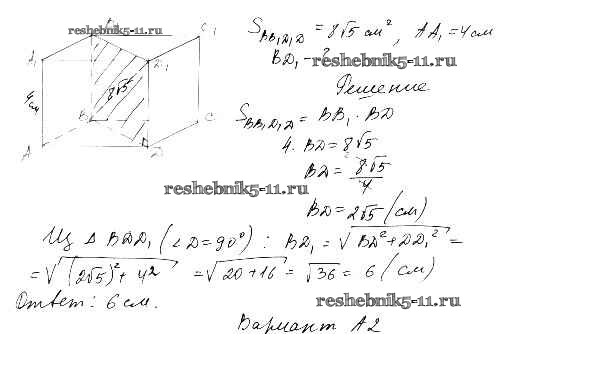 reshebnik5-11.ru
A₁ D₁ C₁
8√5
4 см
A B C D
S_BB₁D₁D = 8√5 см², AA₁ = 4 см
BD₁ - ?
reshebnik5-11.ru
Решение
S_BB₁D₁D = BB₁ · BD
4 · BD = 8√5
BD = 8√5/4
reshebnik5-11.ru
BD = 2√5 (см)
Из Δ BDD₁ (∠D = 90°) : BD₁ = √(BD² + DD₁²) =
= √((2√5)² + 4²) = √(20 + 16) = √36 = 6 (см)
Ответ: 6 см.
reshebnik5-11.ru
Вариант А2